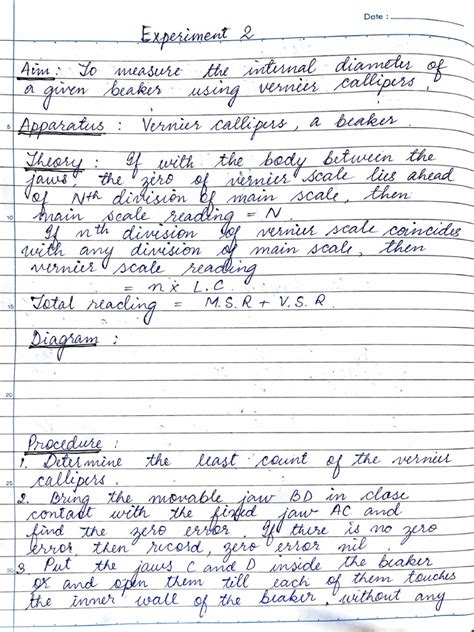 Date :
Experiment 2
Aim : To measure the internal diameter of
a given beaker using vernier callipers.
5
Apparatus : Vernier callipers, a beaker.
Theory : If with the body between the
jaws, the zero of vernier scale lies ahead
of Nth division of main scale, then
10
main scale reading = N.
If nth division of vernier scale coincides
with any division of main scale, then
vernier scale reading
= n x L.C.
15
Total reading = M.S.R + V.S.R.
Diagram :
20
Procedure :
1. Determine the least count of the vernier
25
callipers.
2. Bring the movable jaw BD in close
contact with the fixed jaw AC and
find the zero error. If there is no zero
error, then record, zero error nil.
30
3. Put the jaws C and D inside the beaker
or and open them till each of them touches
the inner wall of the beaker, without any